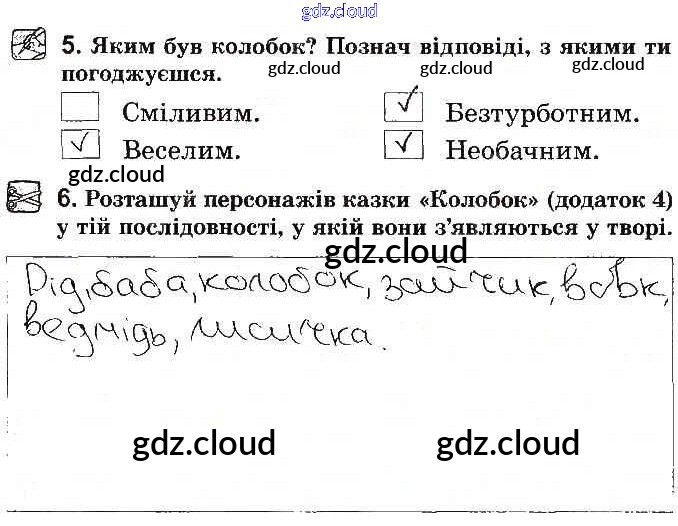 gdz.cloud
5. Яким був колобок? Познач відповіді, з якими ти
погоджуєшся.
gdz.cloud gdz.cloud gdz.cloud
Сміливим. Безтурботним.
Веселим. Необачним.
gdz.cloud
6. Розташуй персонажів казки «Колобок» (додаток 4)
у тій послідовності, у якій вони з’являються у творі.
gdz.cloud
Дід, баба, колобок, зайчик, вовк,
ведмідь, лисичка.
gdz.cloud gdz.cloud